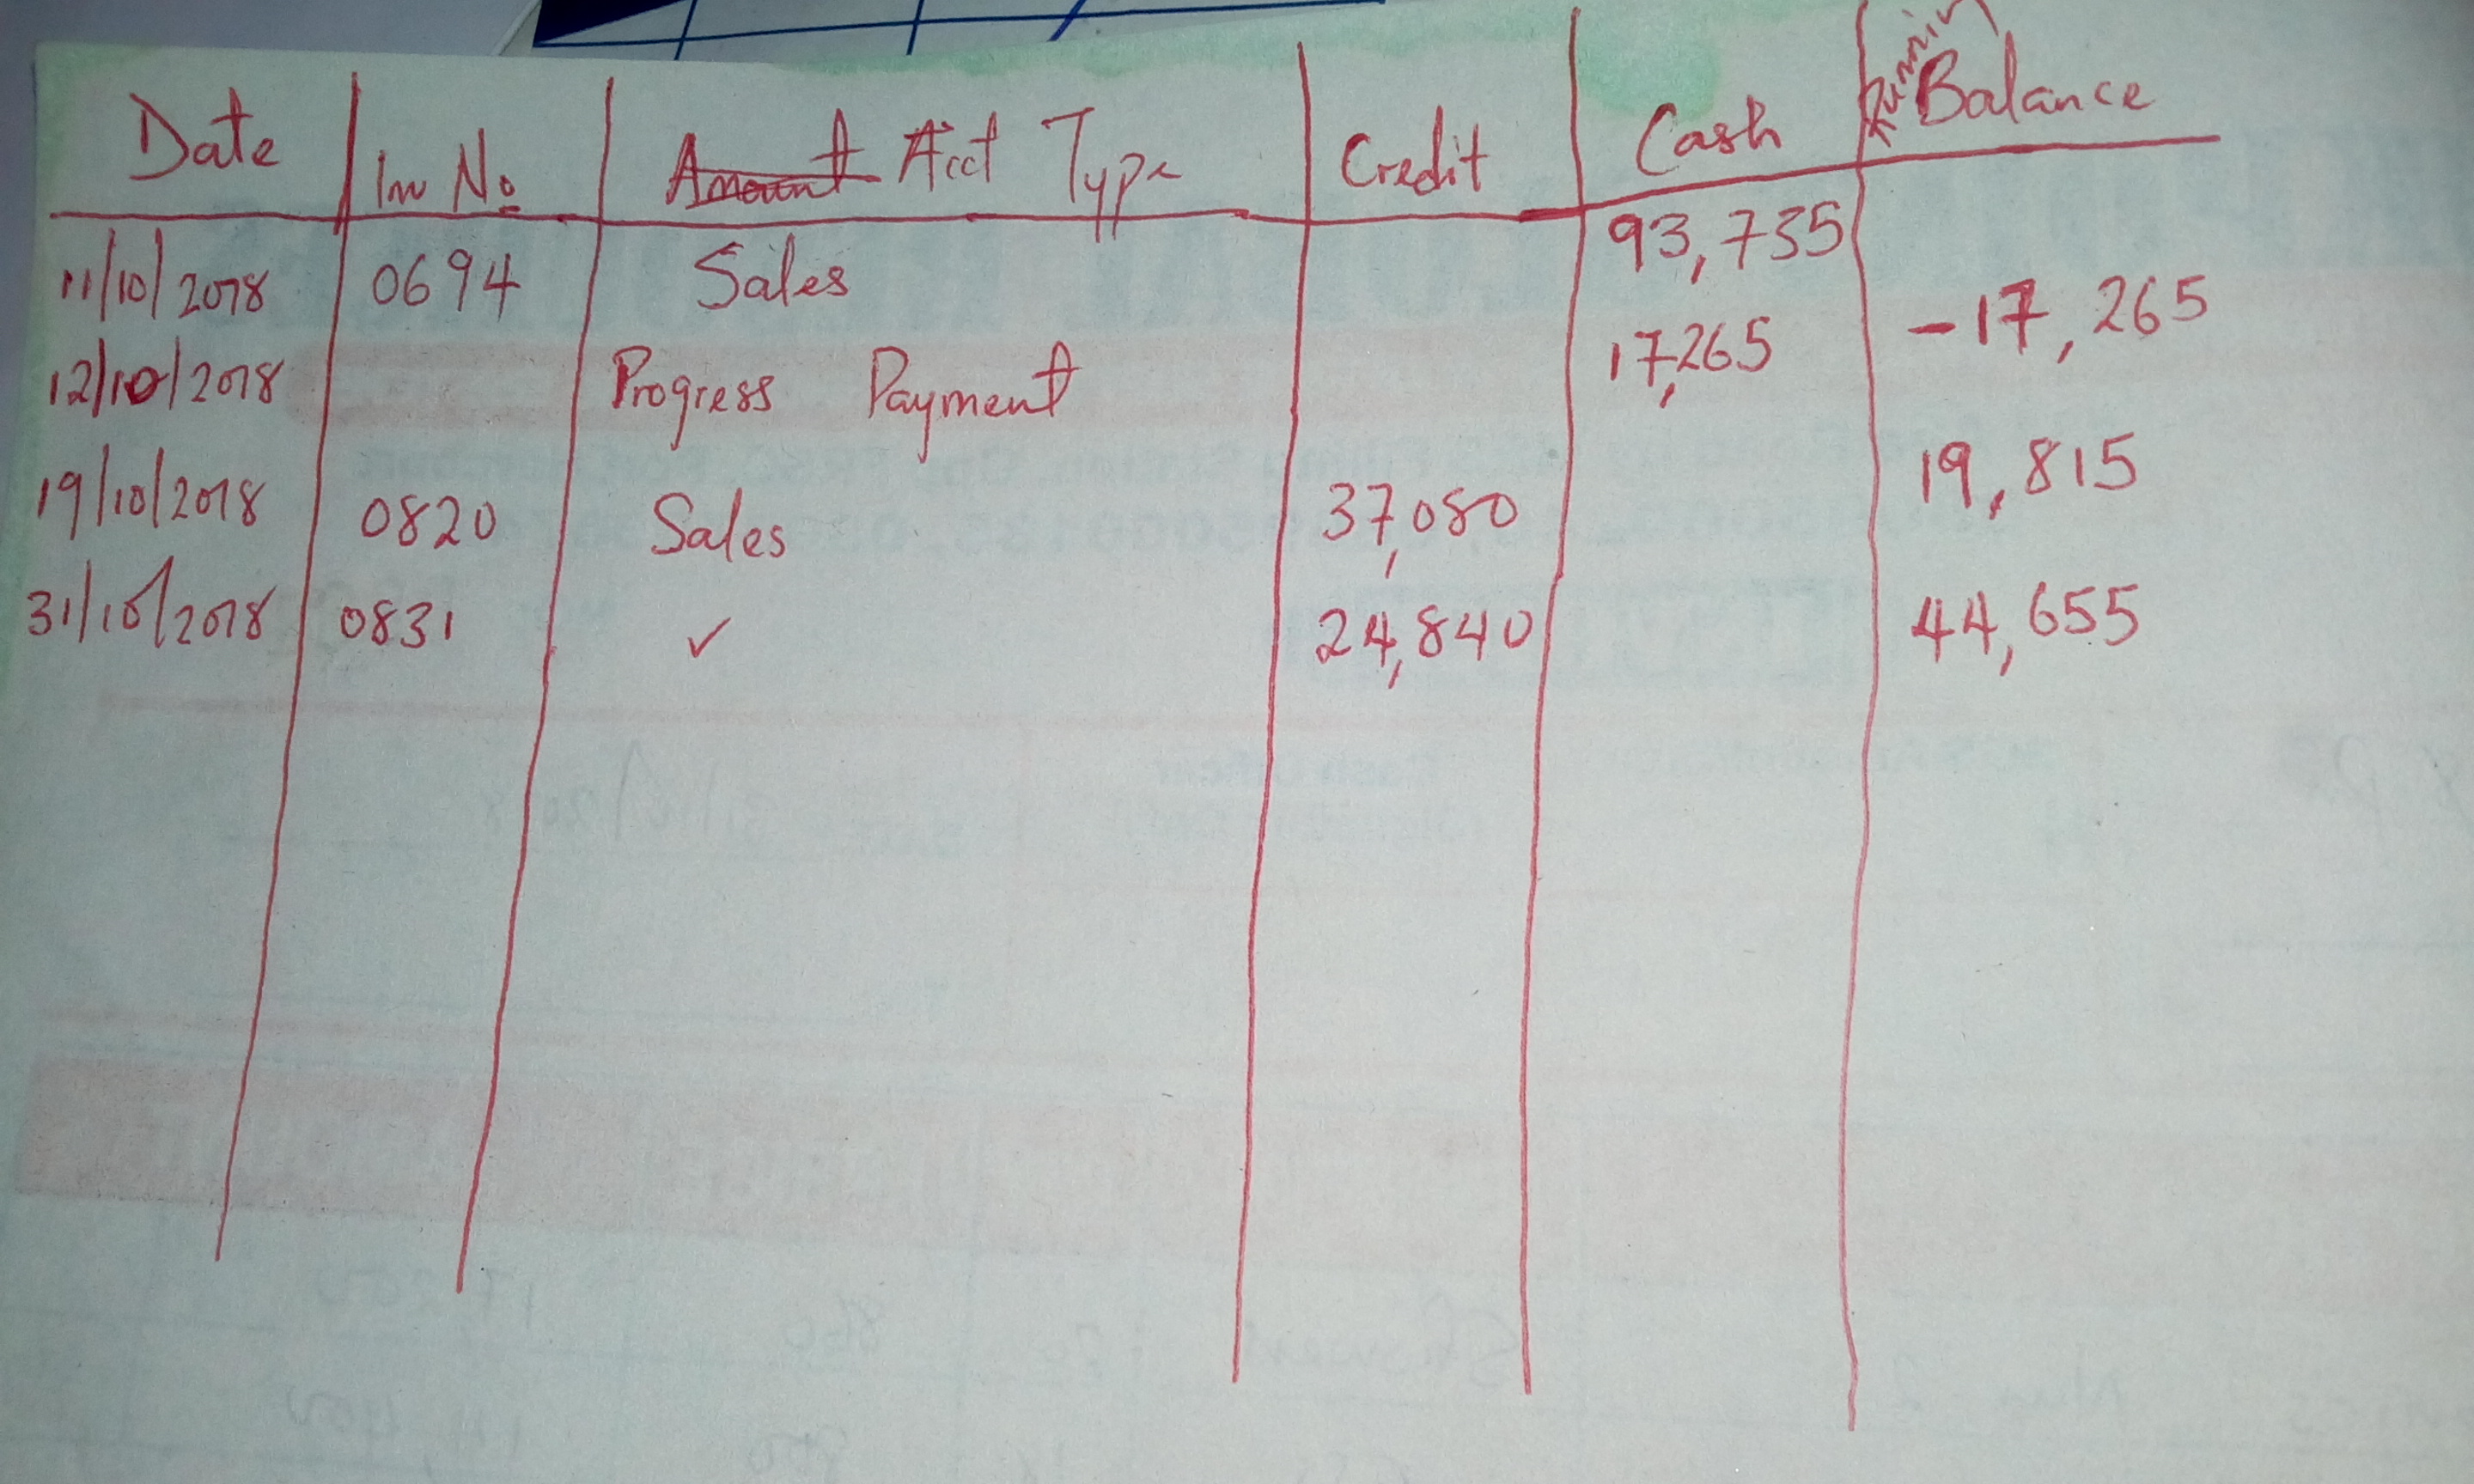 Date Inv No Amount Acct Type Credit Cash Running Balance
11/10/2018 0694 Sales 93,735
12/10/2018 Progress Payment 17,265 -17,265
19/10/2018 0820 Sales 37,080 19,815
31/10/2018 0831 ✓ 24,840 44,655